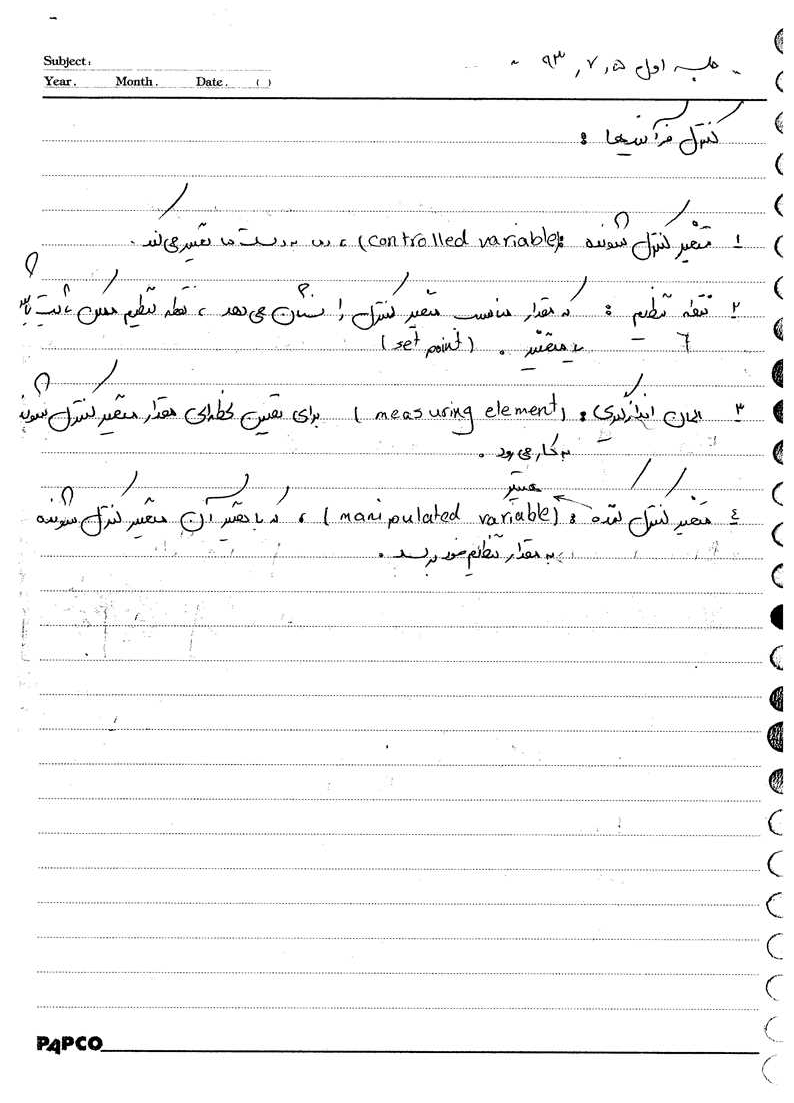 Subject:
Year. Month. Date. ( )
- جلسه اول ۹۳,۷,۵ -
کنترل فرآیندها :
۱ متغیر کنترل شونده (controlled variable): ، به دست ما تغییر می‌کند.
۲ نقطه تنظیم : که مقدار مناسب متغیر کنترل را نشان می‌دهد ، نقطه تنظیم ممکن ثابت باشد
یا متغیر . (set point)
۳ المان اندازه‌گیری : (measuring element) برای تعیین لحظه‌ای مقدار متغیر کنترل شونده
به کار می‌رود .
متغیر
٤ متغیر کنترل کننده : (manipulated variable) ، که با تغییر آن متغیر کنترل شونده
به مقدار تنظیم خود برسد .
PAPCO